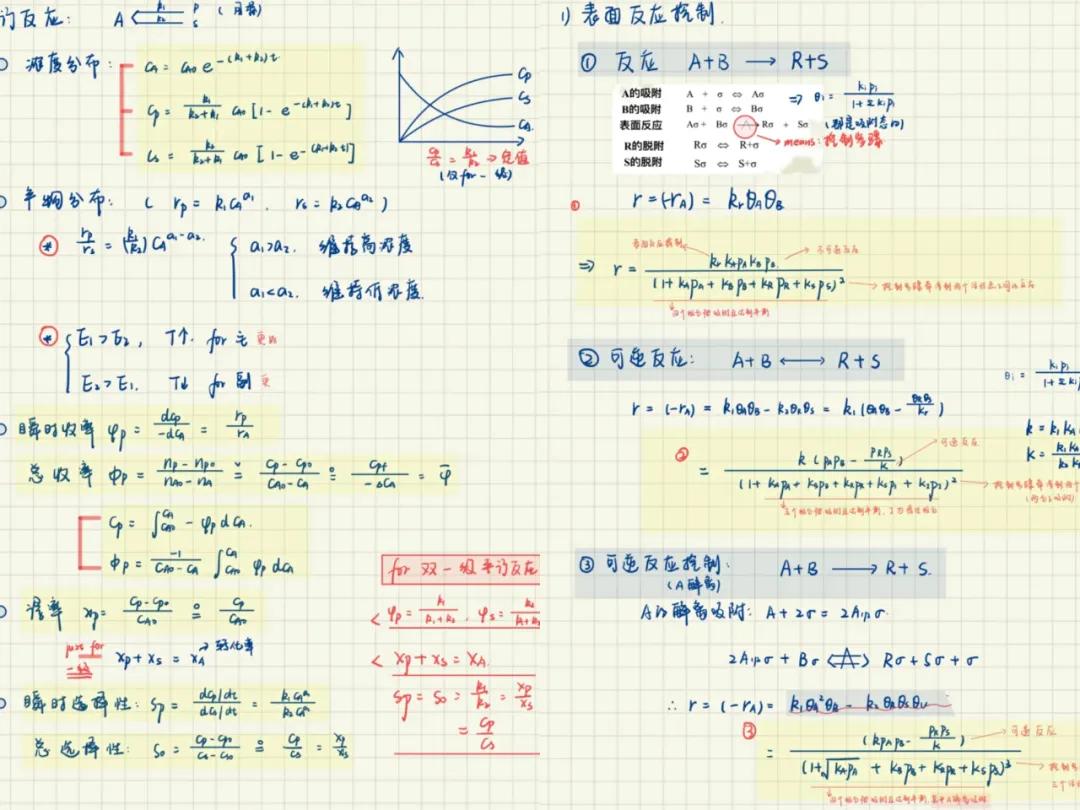 行反应: A k₁ P S (目标)
浓度分布: C_A = C_A0 e^{-(k₁+k₂)t}
C_P = k₁/(k₂+k₁) C_A0 [1 - e^{-(k₁+k₂)t}]
C_S = k₂/(k₂+k₁) C_A0 [1 - e^{-(k₁+k₂)t}]
C_P
C_S
C_A
C_P/C_S = k₁/k₂ → 定值
(仅for 一级)
产物分布: ( r_P = k₁C_A^{a₁}, r_S = k₂C_A^{a₂} )
* r_P/r_S = (k₁/k₂) C_A^{a₁-a₂} { a₁>a₂. 维持高浓度
a₁<a₂. 维持低浓度.
* { E₁>E₂, T↑. for 主
E₂>E₁. T↓ for 副
瞬时收率 φ_P = dC_P/-dC_A = r_P/r_A
总收率 Φ_P = (n_P-n_P0)/(n_A0-n_A) = (C_P-C_P0)/(C_A0-C_A) = C_Pf/-ΔC_A = φ̄
C_P = ∫_{C_A0}^{C_A} -φ_P dC_A.
Φ_P = -1/(C_A0-C_A) ∫_{C_A0}^{C_A} φ_P dC_A
得率 x_P = (C_P-C_P0)/C_A0 = C_P/C_A0
just for 一级 x_P + x_S = x_A → 转化率
瞬时选择性: S_P = (dC_P/dt)/(dC_S/dt) = k₁C_A^{a₁}/k₂C_A^{a₂}
总选择性: S₀ = (C_P-C_P0)/(C_S-C_S0) = C_P/C_S = x_P/x_S
for 双一级平行反应
< φ_P = k₁/(k₁+k₂), φ_S = k₂/(k₁+k₂)
< x_P + x_S = x_A.
S_P = S₀ = k₁/k₂ = x_P/x_S
= C_P/C_S
1) 表面反应控制.
① 反应 A+B → R+S
A的吸附 A + σ ⇔ Aσ
B的吸附 B + σ ⇔ Bσ
表面反应 Aσ + Bσ Rσ + Sσ
R的脱附 Rσ ⇔ R+σ
S的脱附 Sσ ⇔ S+σ
⇒ θ_i = k_iP_i/(1+Σk_iP_i)
(都是吸附态的)
means: 控制步骤
① r = (-r_A) = k_r θ_A θ_B
表面反应控制
不可逆反应
⇒ r = k_r K_A P_A K_B P_B/(1 + K_A P_A + K_B P_B + K_R P_R + K_S P_S)²
② 可逆反应: A+B ⟷ R+S
θ_i = k_iP_i/(1+Σk_iP_i)
r = (-r_A) = k₁θ_Aθ_B - k₂θ_Rθ_S = k₁(θ_Aθ_B - θ_Rθ_S/K_r)
可逆反应
② = k(P_AP_B - P_RP_S/K)/(1 + K_AP_A + K_BP_B + K_RP_R + K_SP_S)²
③ 可逆反应控制: A+B → R+S.
(A解离)
A的解离吸附: A+2σ = 2A₁/₂σ.
2A₁/₂σ + Bσ ⇔ Rσ + Sσ + σ
∴ r = (-r_A) = k₁θ_A²θ_B - k₂θ_Rθ_Sθ_V
可逆反应
③ = (kP_AP_B - P_RP_S/K)/(1+√K_AP_A + K_BP_B + K_RP_R + K_SP_S)³